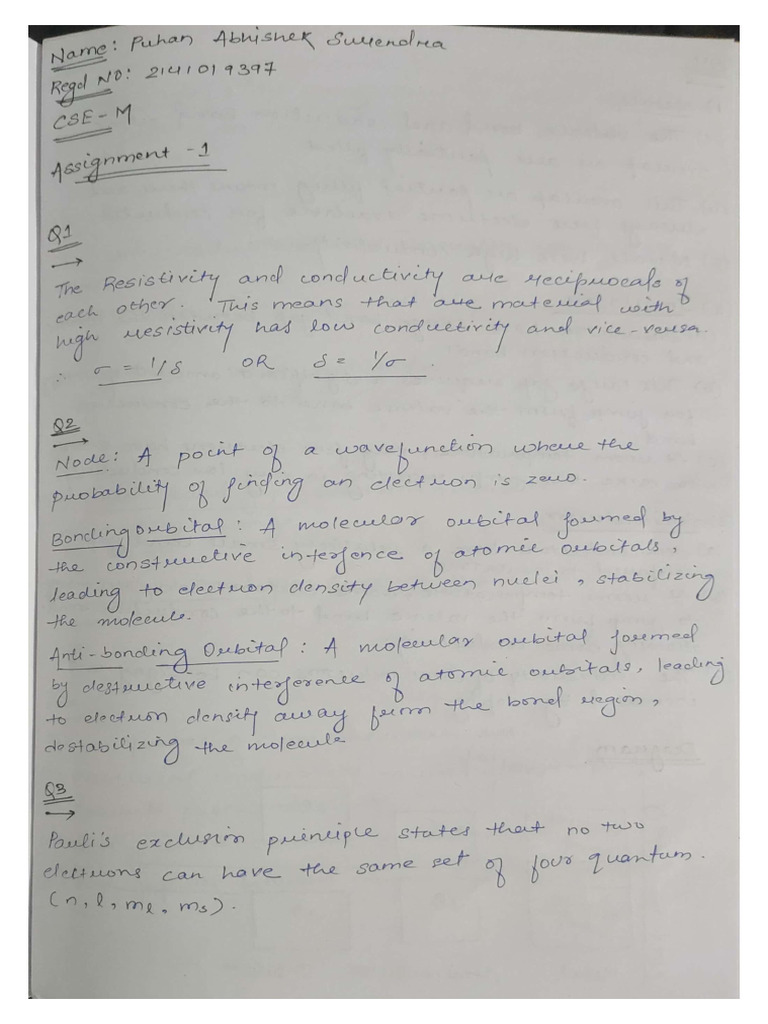 Name: Puhan Abhishek Surendra
Regd NO: 2141019397
CSE-M
Assignment -1
Q1
→
The Resistivity and conductivity are reciprocals of
each other. This means that are material with
high resistivity has low conductivity and vice-versa.
∴ σ = 1/δ OR δ = 1/σ.
Q2
→
Node: A point of a wavefunction where the
probability of finding an electron is zero.
Bonding orbital: A molecular orbital formed by
the constructive interfence of atomic orbitals,
leading to electron density between nuclei, stabilizing
the molecule.
Anti-bonding Orbital: A molecular orbital formed
by destructive interference of atomic orbitals, leading
to electron density away from the bond region,
destabilizing the molecule
Q3
→
Pauli's exclusion principle states that no two
electrons can have the same set of four quantum.
(n, l, ml, ms).